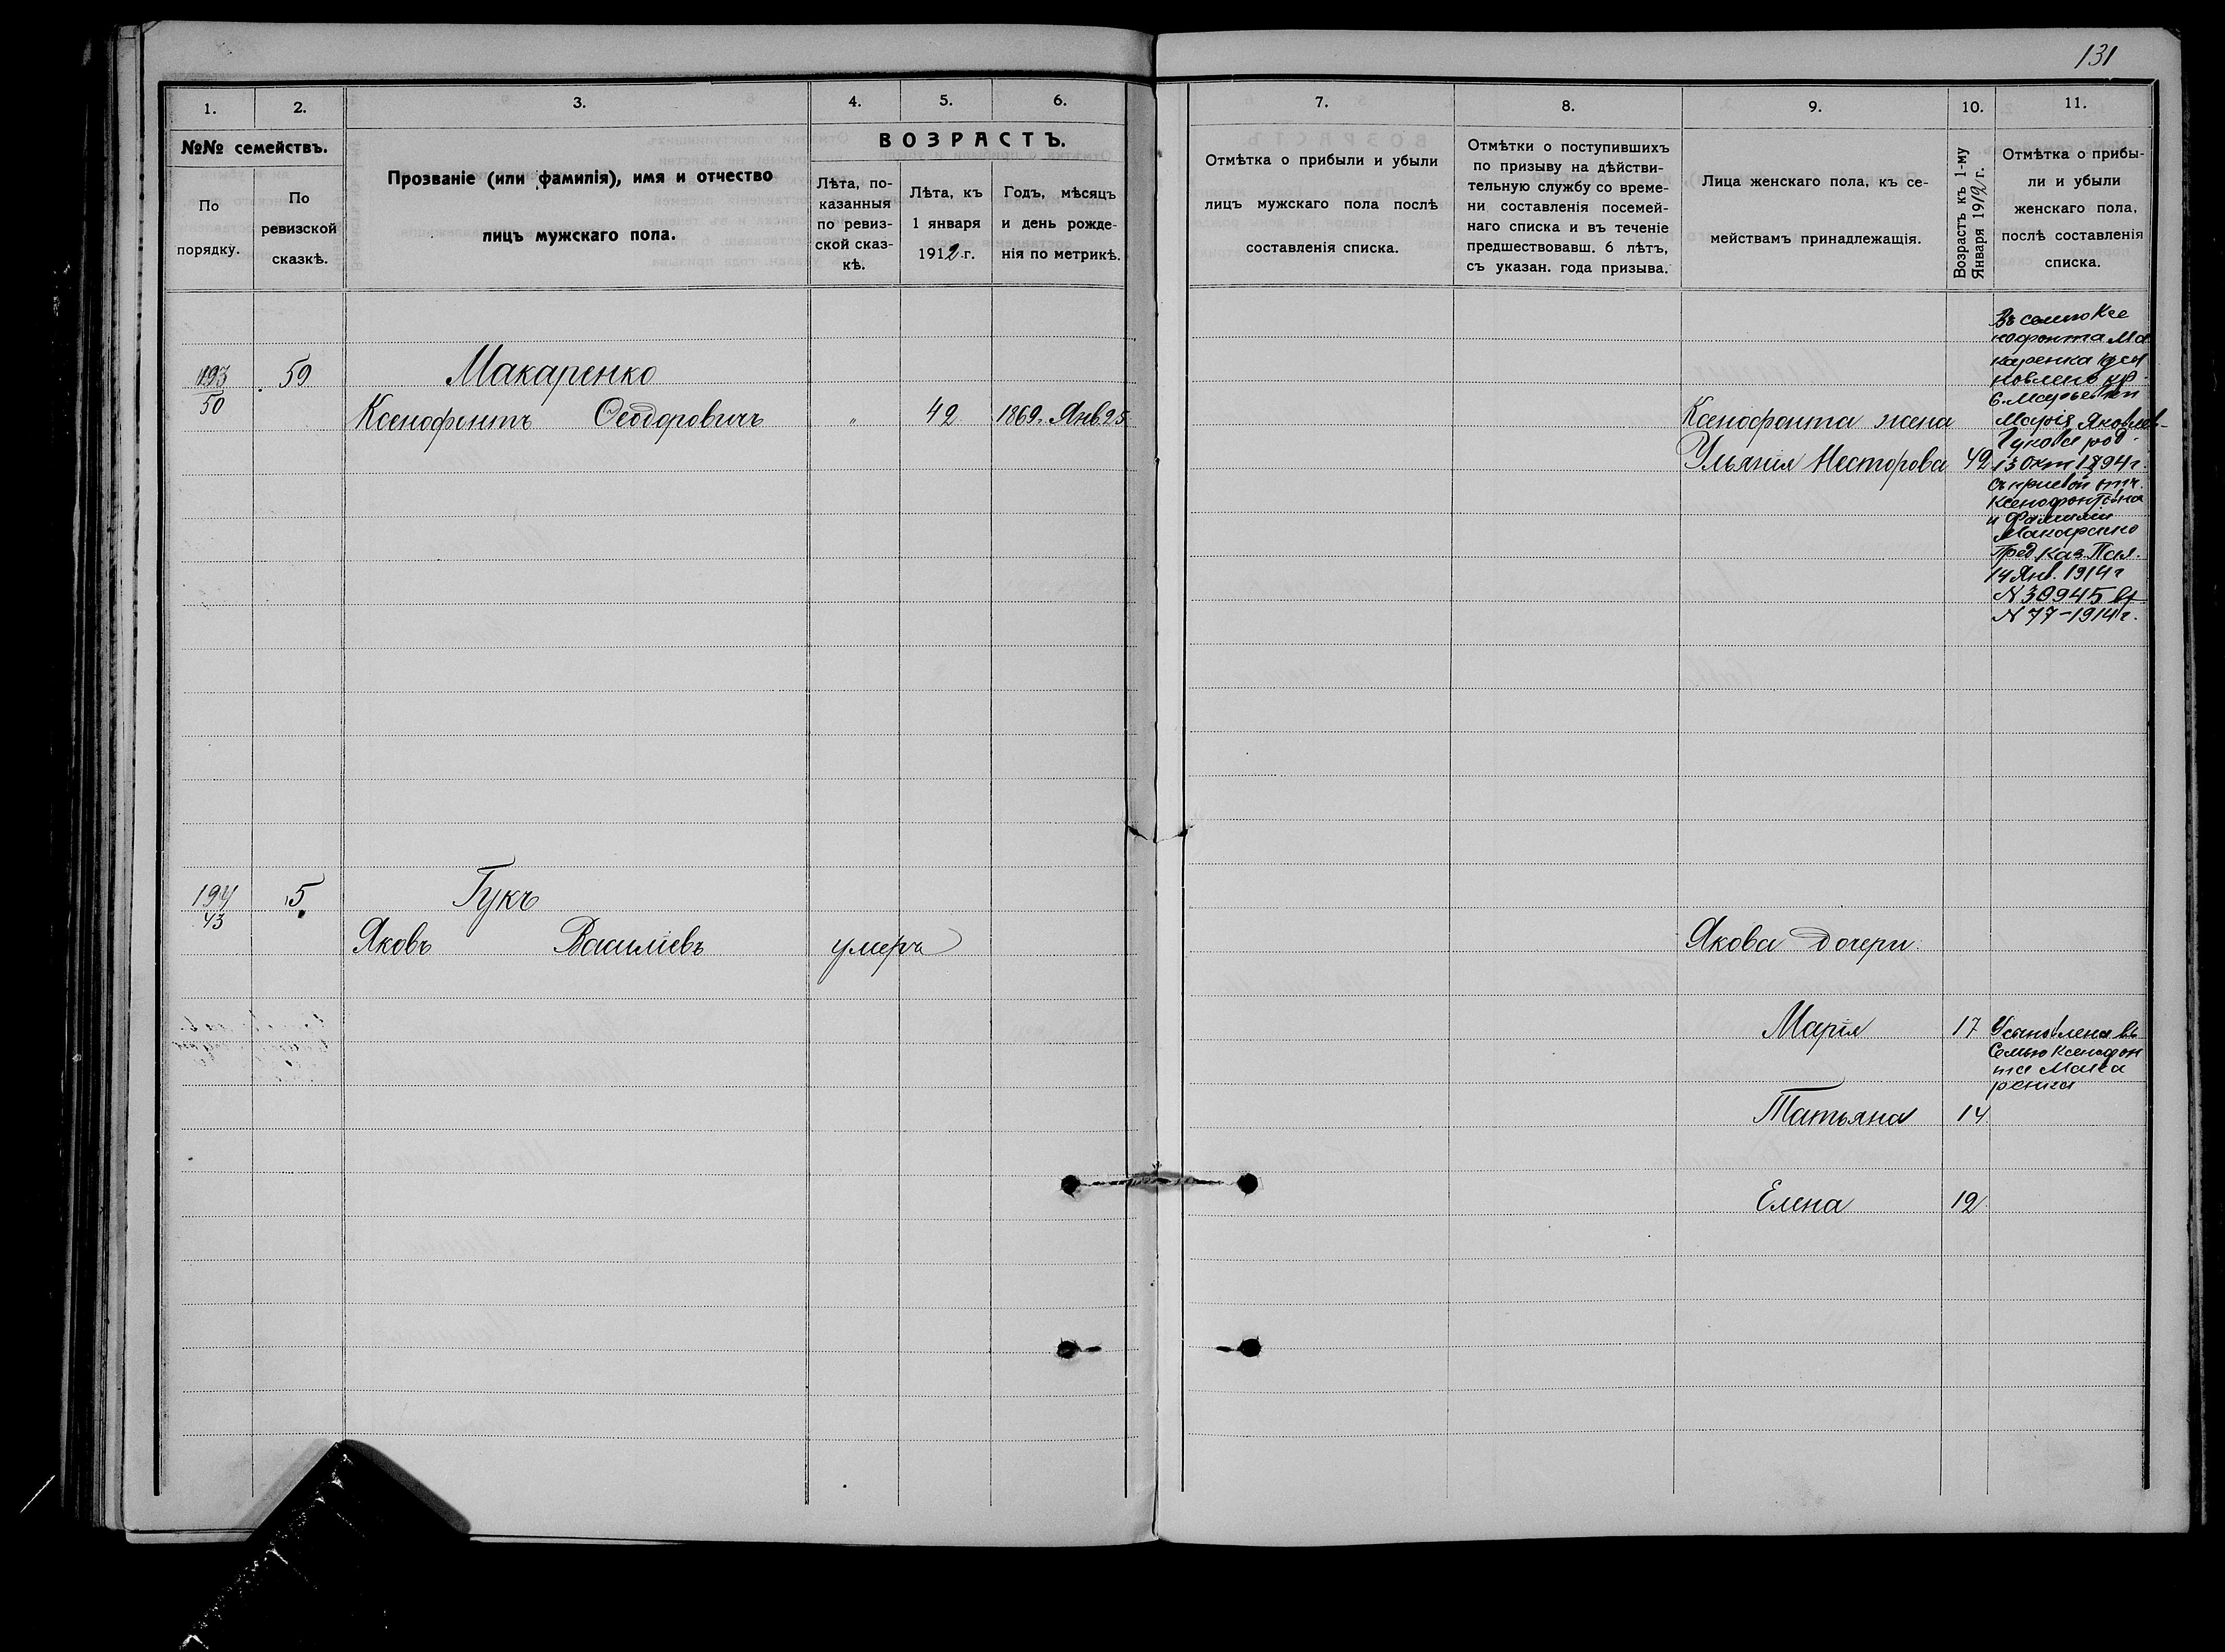 131
1.
2.
3.
4.
5.
6.
7.
8.
9.
10.
11.
№№ семействъ.
По
порядку.
По
ревизской
сказкѣ.
Прозваніе (или фамилія), имя и отчество
лицъ мужскаго пола.
ВОЗРАСТЪ.
Лѣта, по-
казанныя
по ревиз-
ской сказ-
кѣ.
Лѣта, къ
1 января
1912 г.
Годъ, мѣсяцъ
и день рожде-
нія по метрикѣ.
Отмѣтка о прибыли и убыли
лицъ мужскаго пола послѣ
составленія списка.
Отмѣтки о поступившихъ
по призыву на дѣйстви-
тельную службу со време-
ни составленія посемей-
наго списка и въ теченіе
предшествовавш. 6 лѣтъ,
съ указан. года призыва.
Лица женскаго пола, къ се-
мействамъ принадлежащія.
Возрастъ къ 1-му
Января 1912 г.
Отмѣтка о прибы-
ли и убыли
женскаго пола,
послѣ составленія
списка.
193
50
59
Макаренко
Ксенофонтъ Ѳеодоровичъ
"
42
1869. Янв. 25
Ксенофонта жена
Ульянія Несторова
42
Въ семью Ксе
нофонта Ма
каренка усы
новлена кр.
Марія Яковлев-
Гукова род.
13 Окт 1894 г.
Ксенофонтовна
и фамиліи
Макаренко
14 Янв. 1914 г
N 30945
N 77-1914 г.
194
43
5
Гукъ
Яковъ Василіевъ
умеръ
Якова дочери:
Марія
17
Усыновлена въ
Семью Ксенофон
та Мака
ренка
Татьяна
14
Елена
12